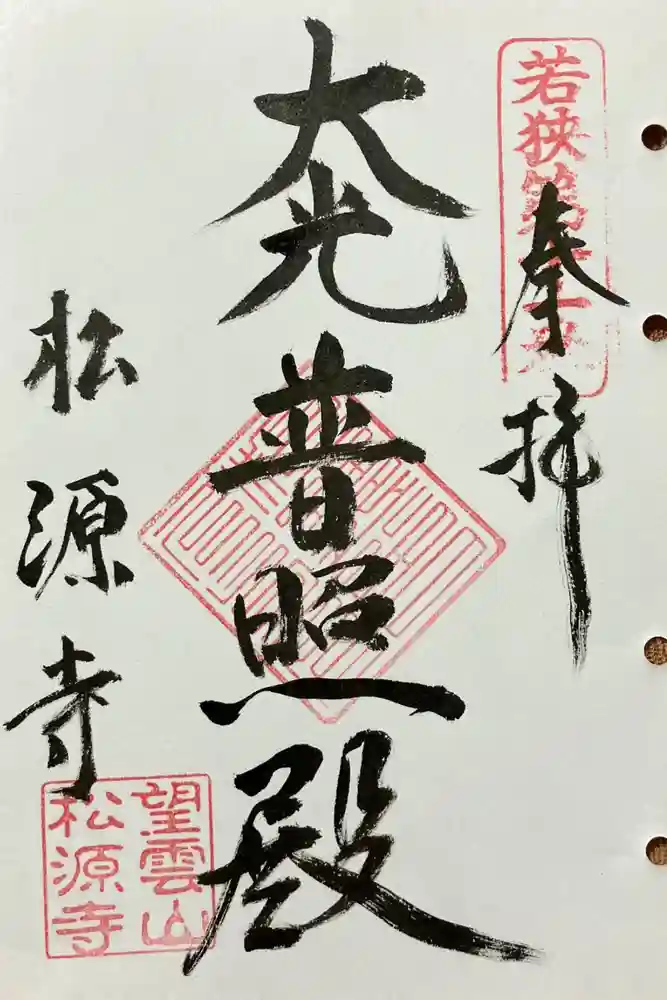 若狭第
奉拝
大光普照殿
松源寺
望雲山
松源寺